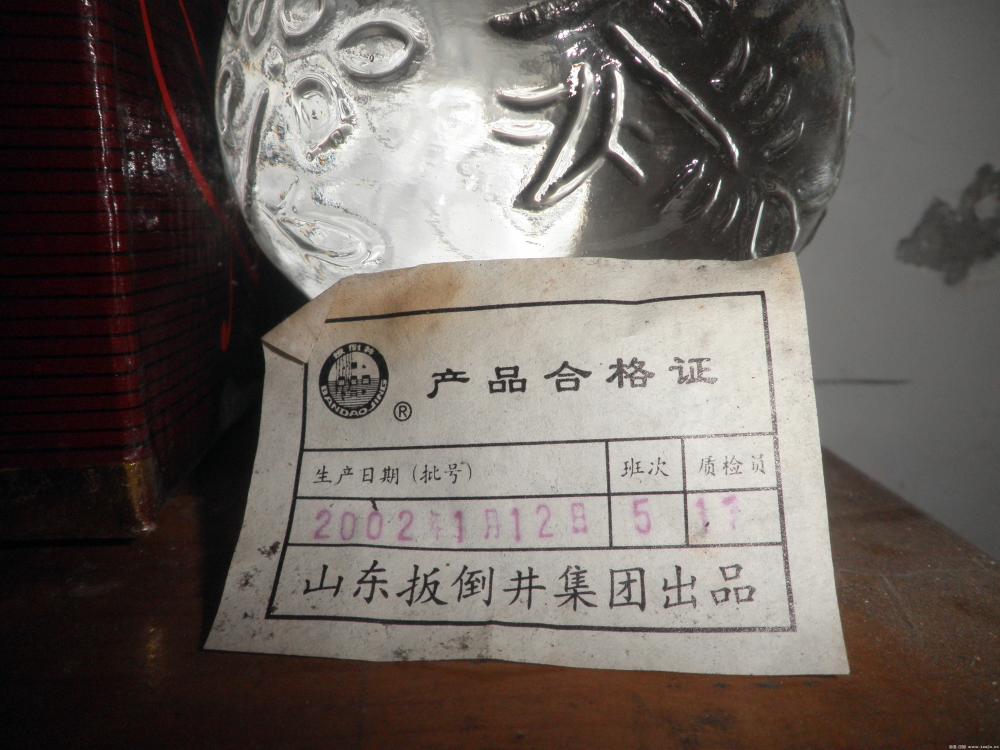 扳倒井
BANDAOJING
®
产品合格证
生产日期（批号） 班次 质检员
2002年1月12日 5 17
山东扳倒井集团出品